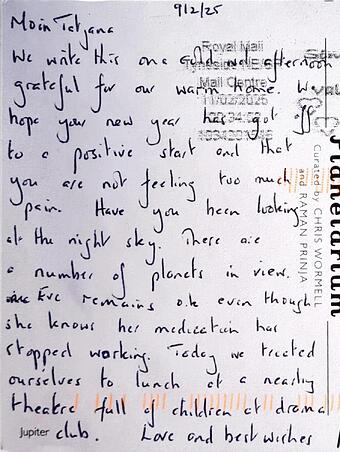 9/2/25
Moin Tatjana
We write this on a cold wet afternoon
grateful for our warm home. We
hope your new year has got off
to a positive start and that
you are not feeling too much
pain. Have you been looking
at the night sky. There are
a number of planets in view.
Eve remains o.k even though
she knows her medication has
stopped working. Today we treated
ourselves to lunch at a nearby
theatre full of children at drama
club. Love and best wishes
Jupiter
Royal Mail
Tyneside NE/SR
Mail Centre
11/02/2025
Planetarium
Curated by CHRIS WORMELL
and RAMAN PRINJA